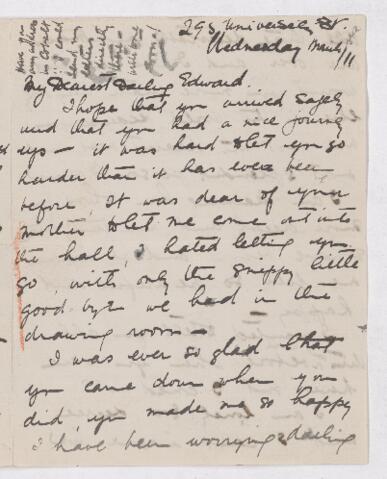 295 University St.
Wednesday March 1/11
Have you
any address
in Cobalt
I could
send my
letters
directly
there -
write one
soon!
My Dearest Darling Edward.
I hope that you arrived safely
and that you had a nice journey
up - it was hard to let you go
harder than it has ever been
before, it was dear of your
mother to let me come out into
the hall, I hated letting you
go, with only the snippy little
good-bye we had in the
drawing room -
I was ever so glad that
you came down when you
did, you made me so happy
I have been worrying darling